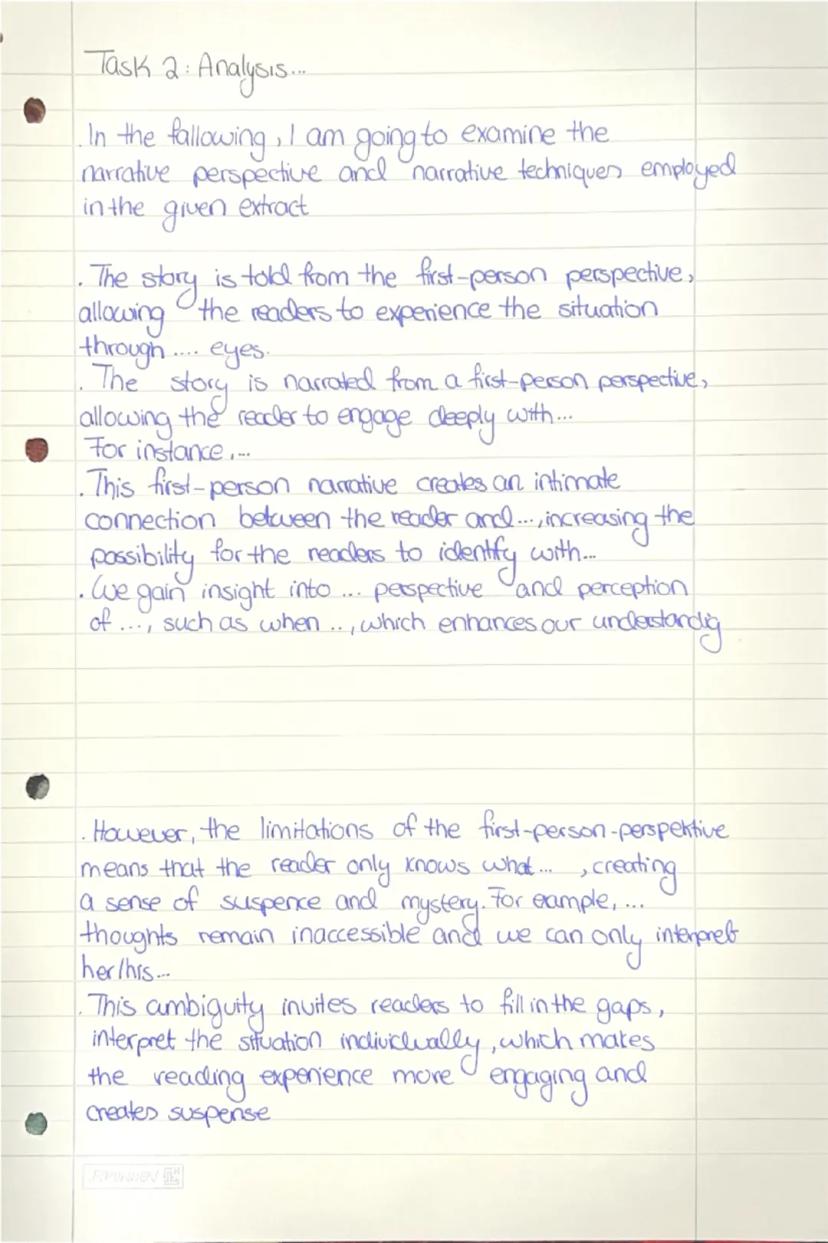 Task 2: Analysis...
. In the following, I am going to examine the
narrative perspective and narrative techniques employed
in the given extract
. The story is told from the first-person perspective,
allowing the readers to experience the situation
through .... eyes.
. The story is narrated from a first-person perspective,
allowing the reader to engage deeply with...
For instance,...
. This first-person narrative creates an intimate
connection between the reader and..., increasing the
possibility for the readers to identify with...
. We gain insight into ... perspective and perception
of ..., such as when .., which enhances our understandig
. However, the limitations of the first-person-perspektive
means that the reader only knows what... , creating
a sense of suspence and mystery. For eample, ...
thoughts remain inaccessible and we can only interpret
her/his...
. This ambiguity invites readers to fill in the gaps,
interpret the situation individually, which makes
the reading experience more engaging and
creates suspense
BRUNNEN